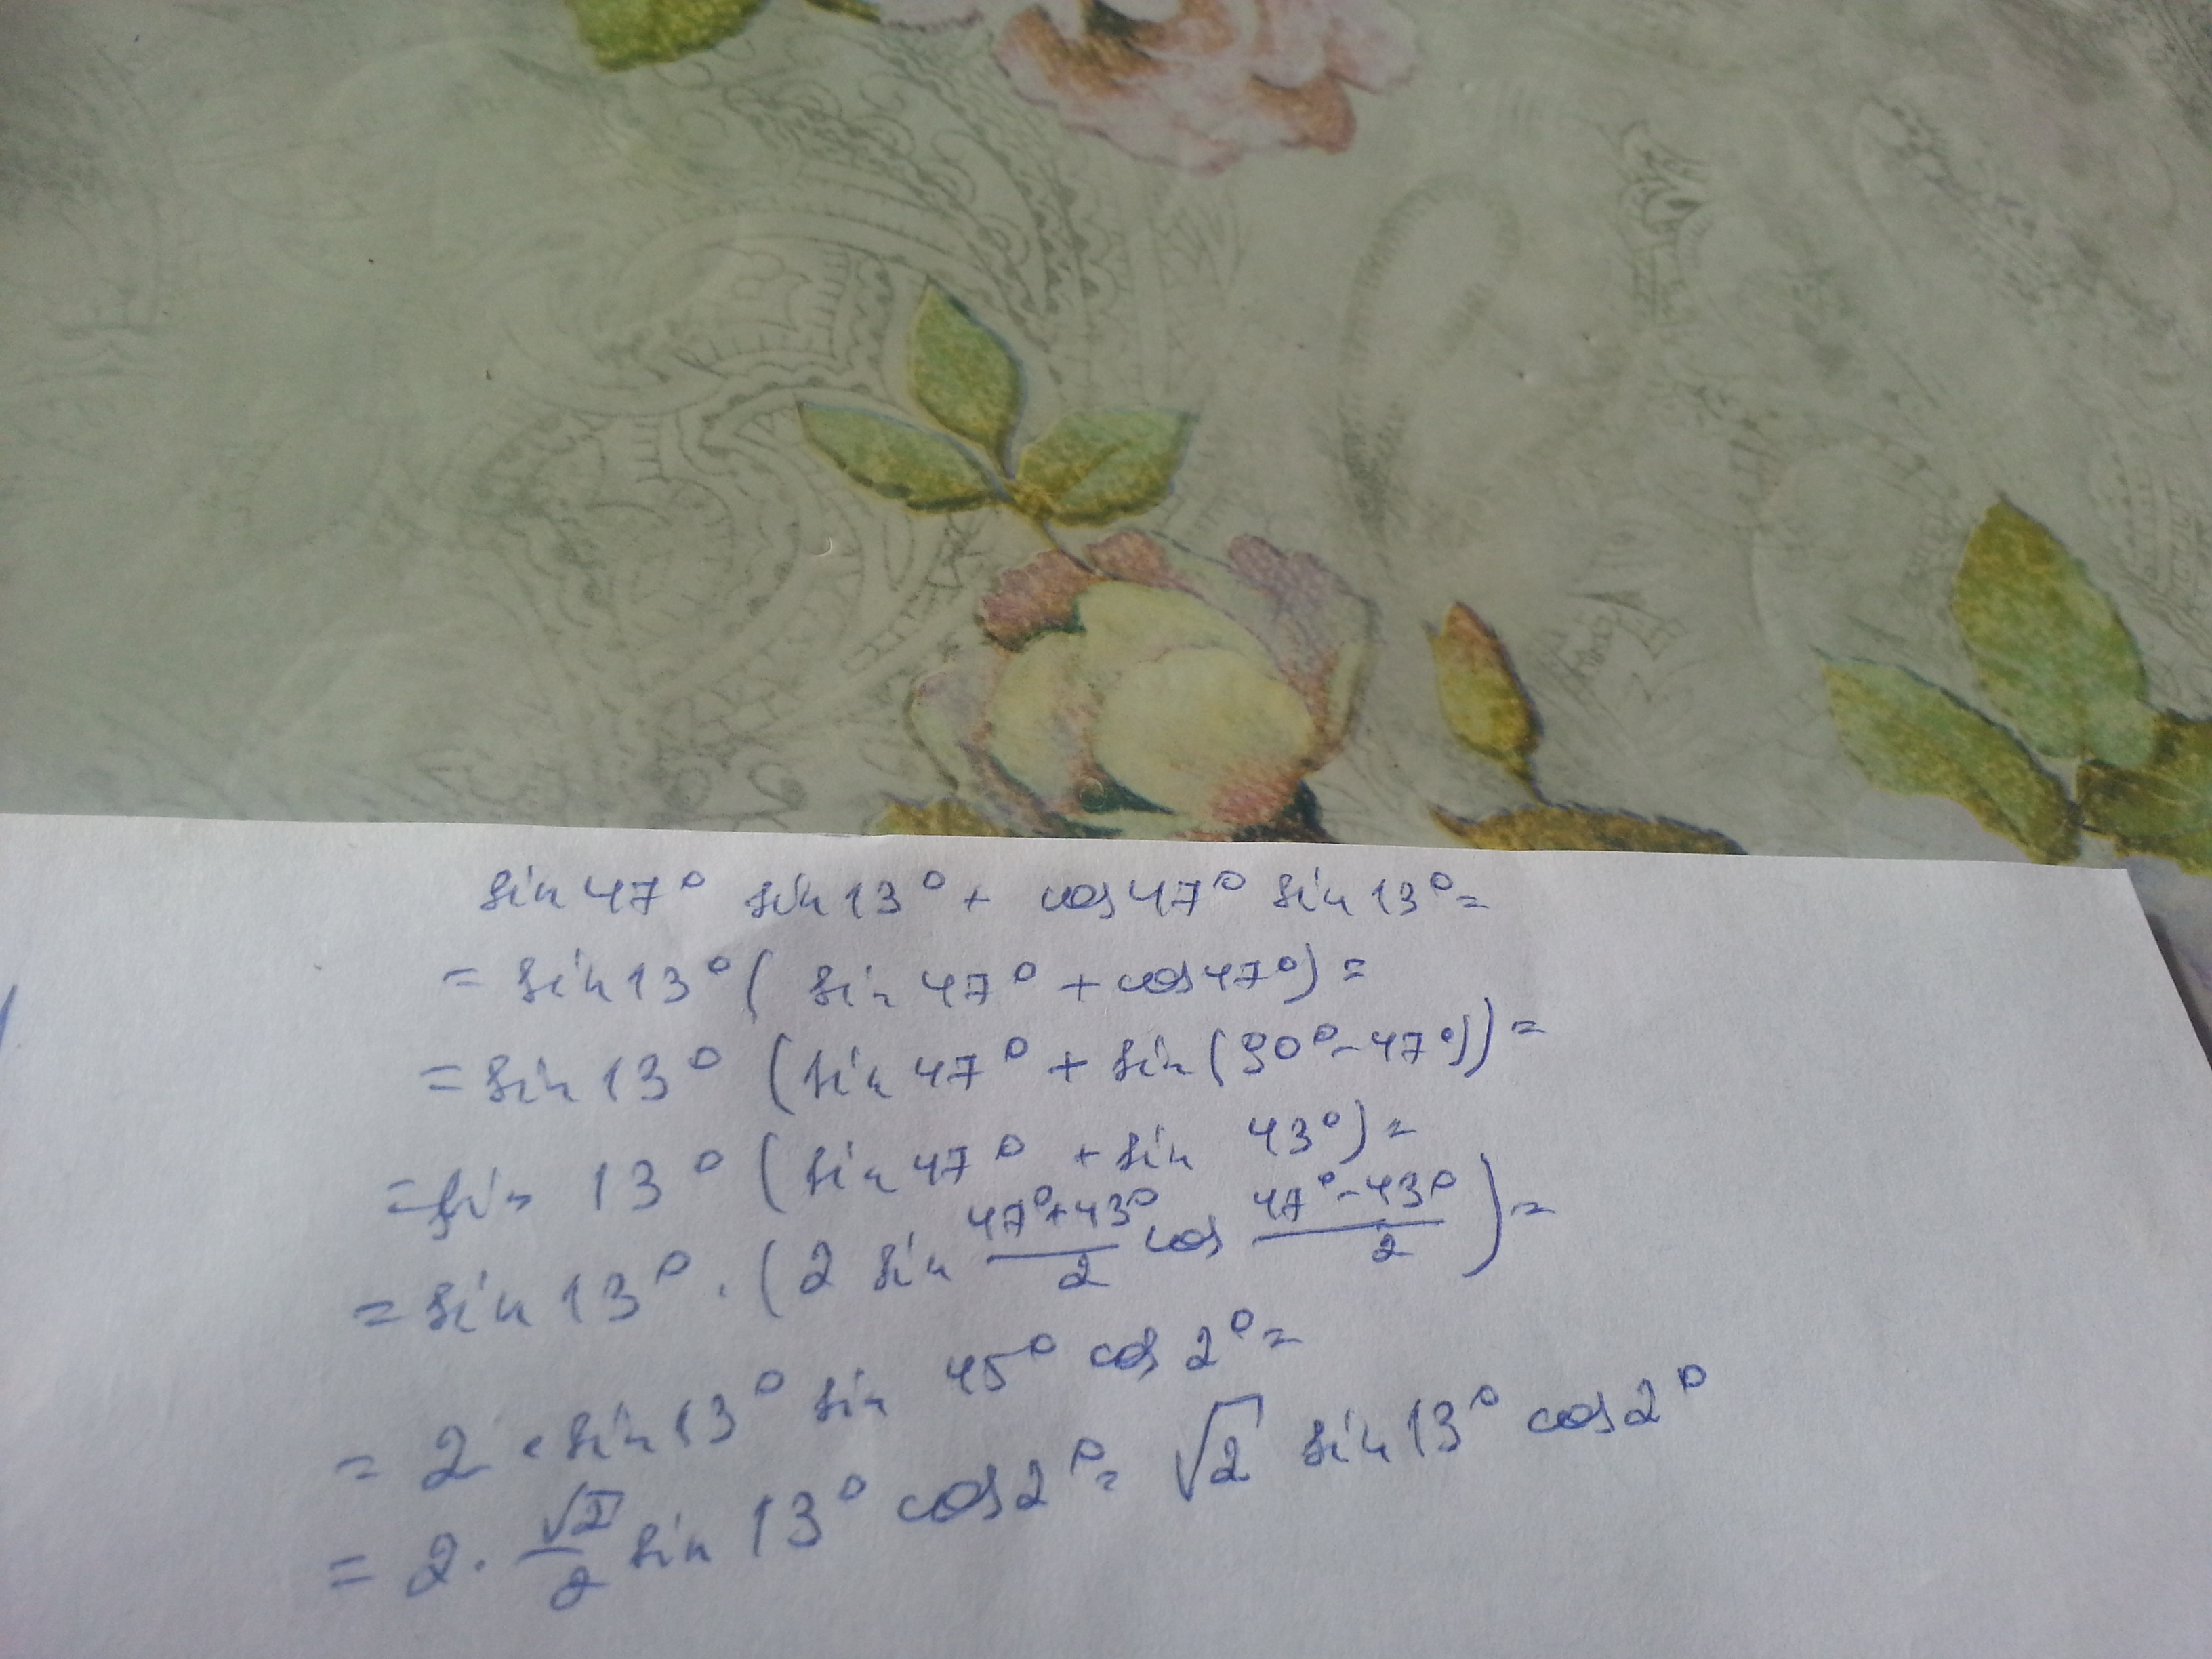 sin 47° sin 13° + cos 47° sin 13° =
= sin 13° ( sin 47° + cos 47°) =
= sin 13° (sin 47° + sin (90° - 47°)) =
= sin 13° (sin 47° + sin 43°) =
= sin 13° · (2 sin \frac{47°+43°}{2} cos \frac{47°-43°}{2}) =
= 2 · sin 13° sin 45° cos 2° =
= 2 · \frac{√2}{2} sin 13° cos 2° = √2 sin 13° cos 2°